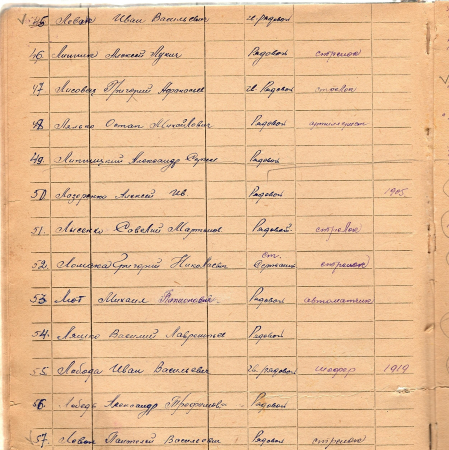 45. Иван Васильевич гв. рядовой
46. Алексей Лукич Рядовой стрелок
47. Лисовец Григорий Афанасьев гв. Рядовой стрелок
48. Лялько Остап Михайлович Рядовой артиллерист
49. Липницкий Александр Сергее Рядовой
50. Лазоренко Алексей Ив. Рядовой 1905
51. Лысенко Савелий Мартынов Рядовой стрелок
52. Ломака Григорий ст. Сержант стрелок
53. Лют Михаил Рядовой автоматчик
54. Ляшко Василий Лаврентьев Рядовой
55. Лобода Иван Васильевич гв. рядовой шофер 1919
56. Лебедь Александр Трофимов Рядовой
57. Пантелей Васильевич Рядовой стрелок